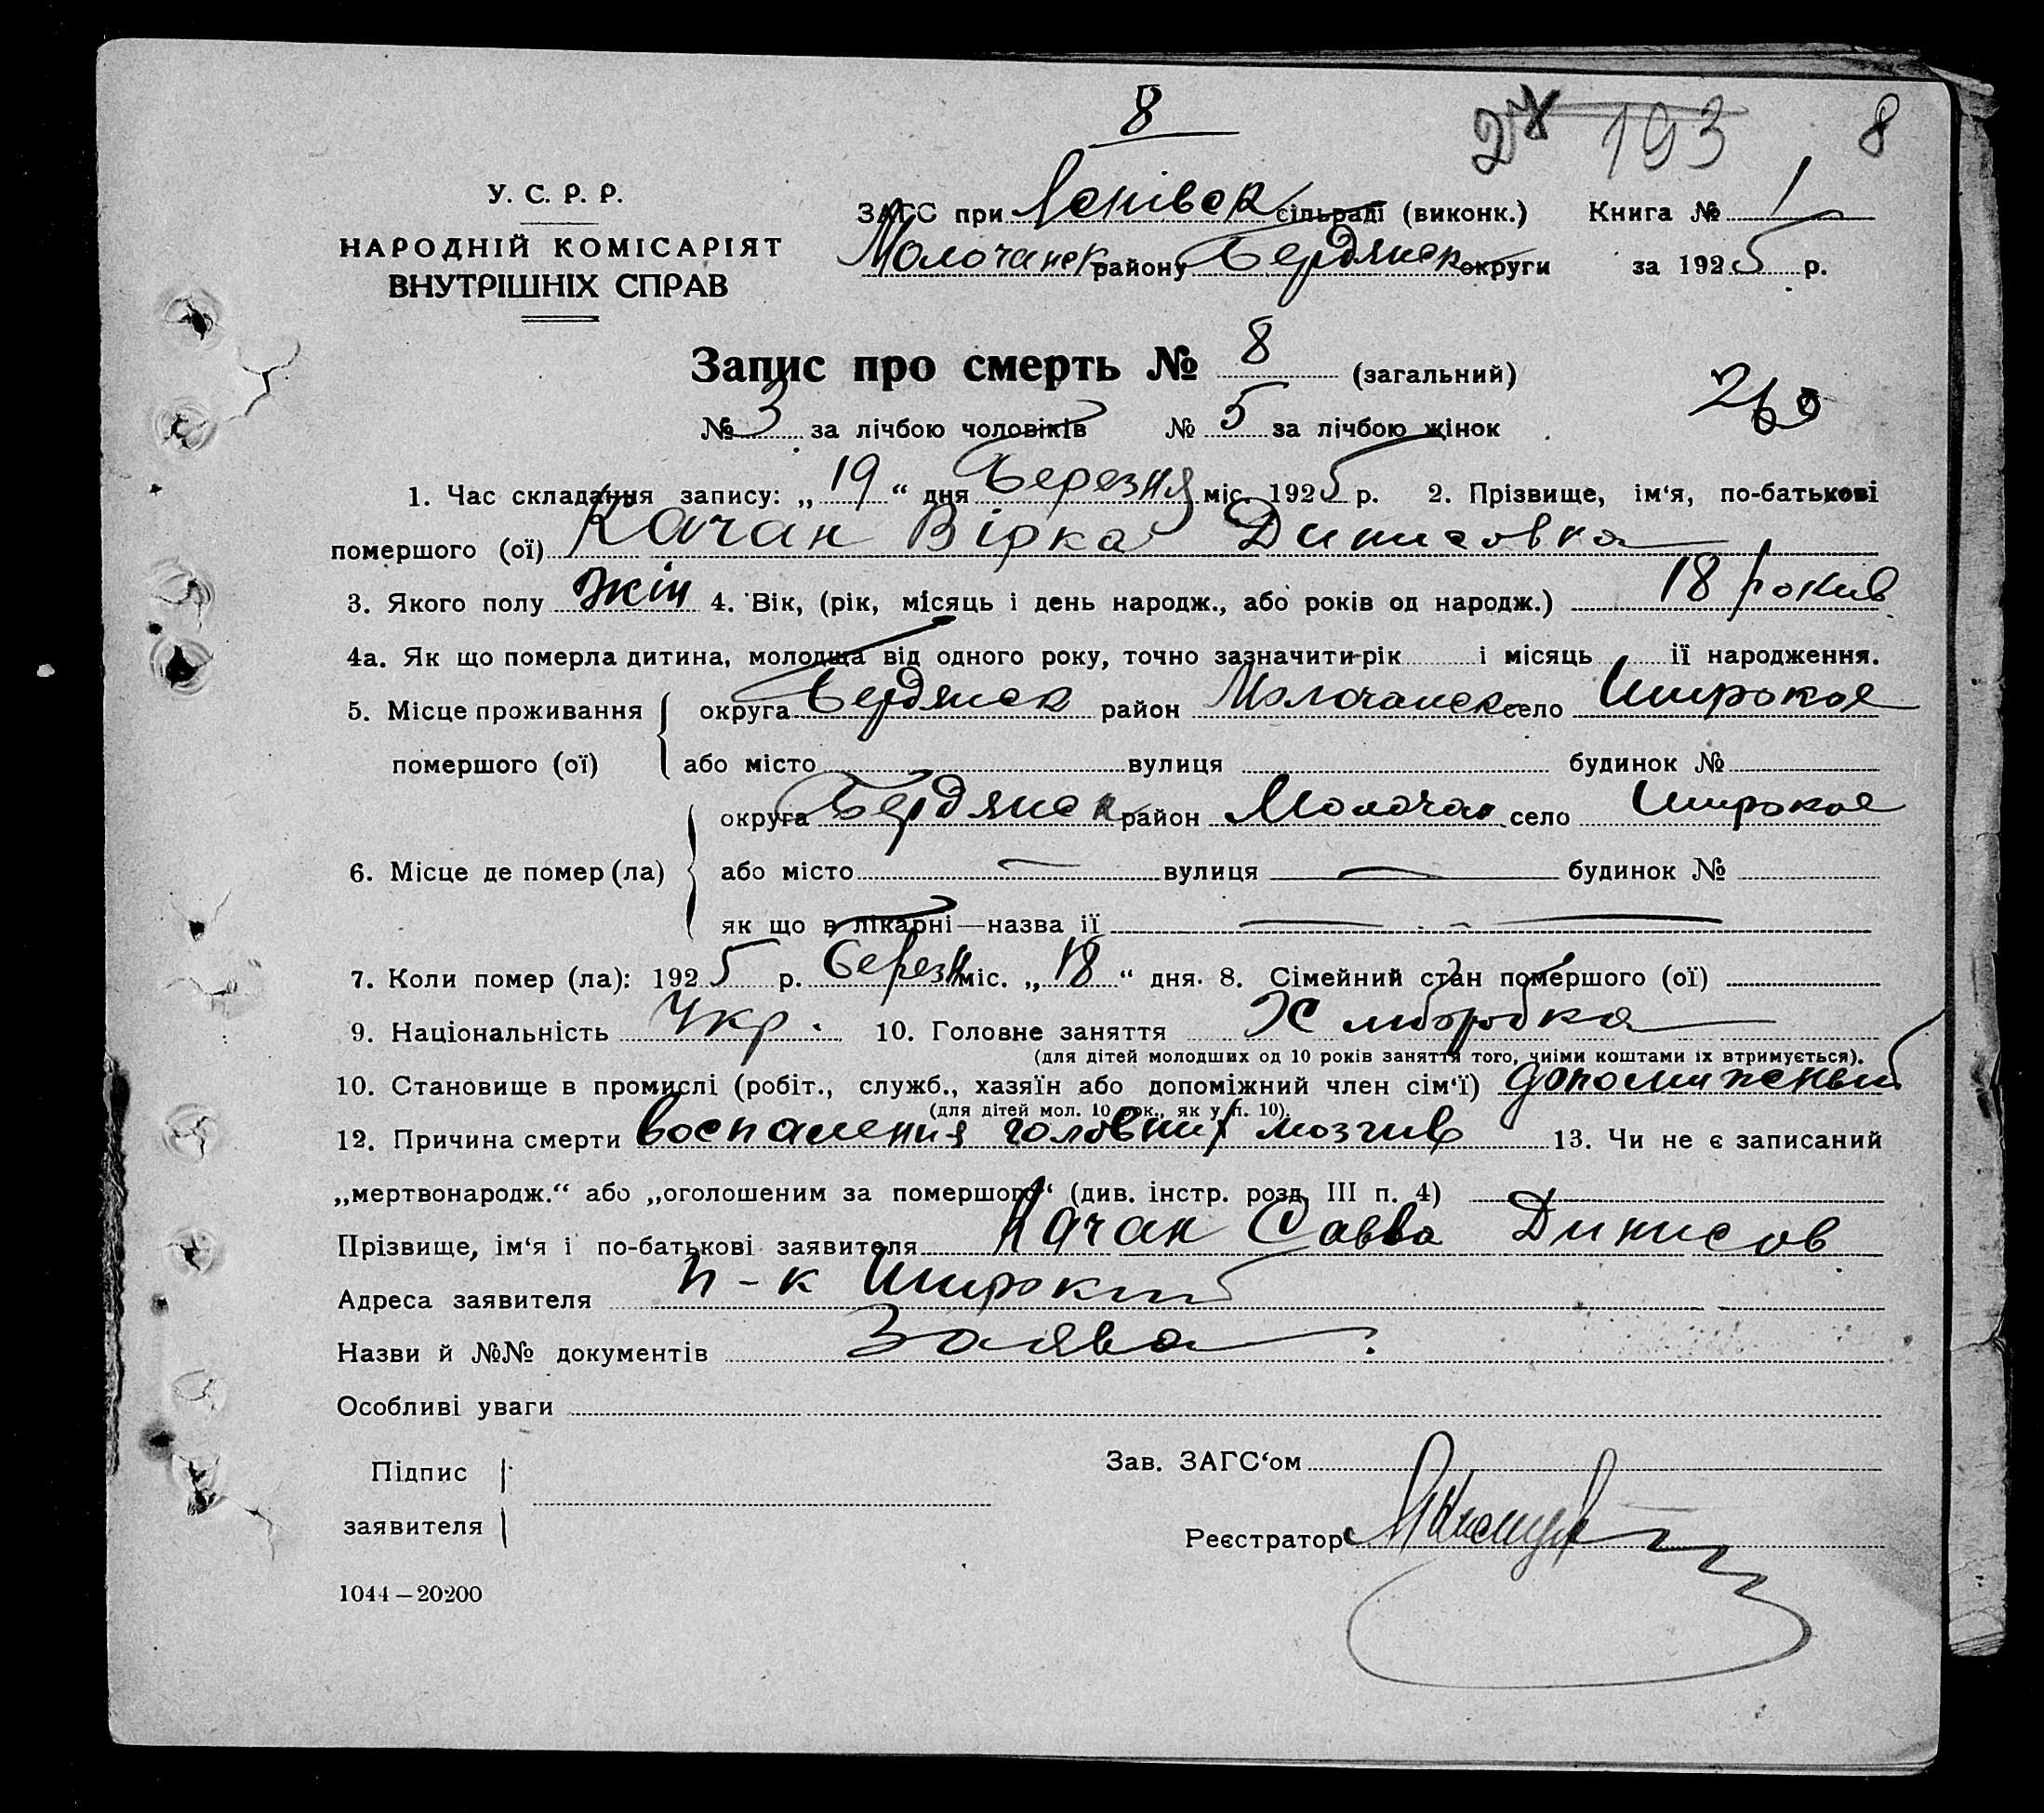 8
193 8
У. С. Р. Р.
НАРОДНІЙ КОМІСАРІЯТ
ВНУТРІШНІХ СПРАВ
ЗАГС при сільраді (виконк.) Книга № 1
Молочанск району Бердянск округи за 1925 р.
Запис про смерть № 8 (загальний)
№ 3 за лічбою чоловіків № 5 за лічбою жінок
1. Час складання запису: „ 19 “ дня Березня міс. 1925 р. 2. Прізвище, ім‘я, по-батькові
помершого (ої) Качан Вірка Динисовна
3. Якого полу жін 4. Вік, (рік, місяць і день народж., або років од народж.) 18 рокив
4а. Як що померла дитина, молодща від одного року, точно зазначити-рік і місяць ії народження.
5. Місце проживання округа Бердянск район Молочанск село Широкое
помершого (ої) або місто вулиця будинок №
округа Бердянск район Молочан село Широкое
6. Місце де помер (ла) або місто вулиця будинок №
як що в лікарні—назва ії
7. Коли помер (ла): 1925 р. Березн міс. „ 18 “ дня. 8. Сімейний стан помершого (ої)
9. Національність Укр. 10. Головне заняття Хлиборобка
(для дітей молодших од 10 років заняття того, чиіми коштами іх втримується).
10. Становище в промислі (робіт., служб., хазяїн або допоміжний член сім‘ї)
(для дітей мол. 10 рок., як у п. 10).
12. Причина смерти воспаления головних мозгив 13. Чи не є записаний
„мертвонародж.“ або „оголошеним за помершого“ (див. інстр. розд. III п. 4)
Прізвище, ім‘я і по-батькові заявителя Качан Савва Динисов
Адреса заявителя п-к Широкий
Назви й №№ документів Заява
Особливі уваги
Підпис
заявителя
Зав. ЗАГС‘ом
Реєстратор
1044—20200